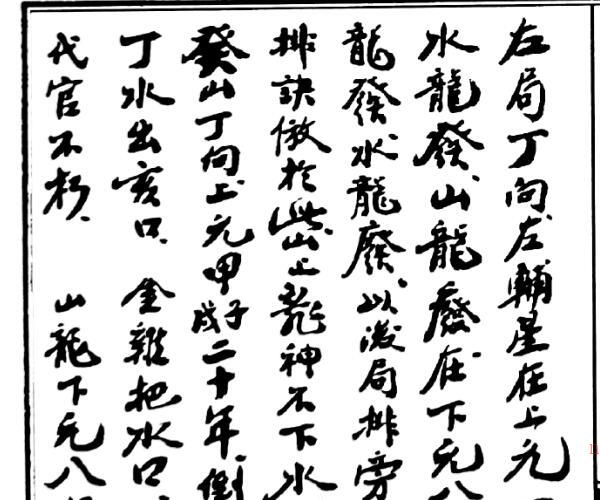 左局丁向左輔星在上元
水龍發山龍廢在下元八
龍發水龍廢以後局排旁
排訣倣於此山上龍神不下水
癸山丁向上元甲子戌二十年倒
丁水出亥口 金雞把水口
代官不朽 山龍下元八